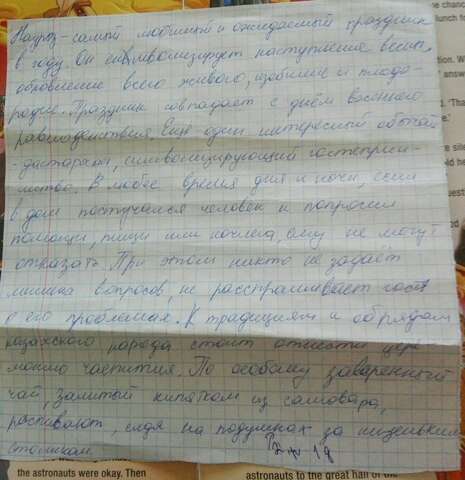 Науроз-самый любимый и ожидаемый праздник
в году. Он символизирует наступление весны,
обновление всего живого, изобилие и плодо-
родие. Праздник совпадает с днём весеннего
равноденствия. Ещё один интересный обычай
-дастархан, символизирующий гостеприи-
мство. В любое время дня и ночи, если
в дом постучался человек и попросил
помощи, пищи или ночлега, ему не могут
отказать. При этом никто не задаёт
лишних вопросов, не расспрашивает гостя
о его проблемах. К традициям и обрядам
казахского народа стоит отнести цере-
монию чаепития. По особому заваренный
чай, залитый кипятком из самовара,
распивают, сидя на подушках за низенькими
столиком.
the chance
lunch f
'Tha
the sile
old he
the astronauts were okay. Then
astronauts to the great hall of the